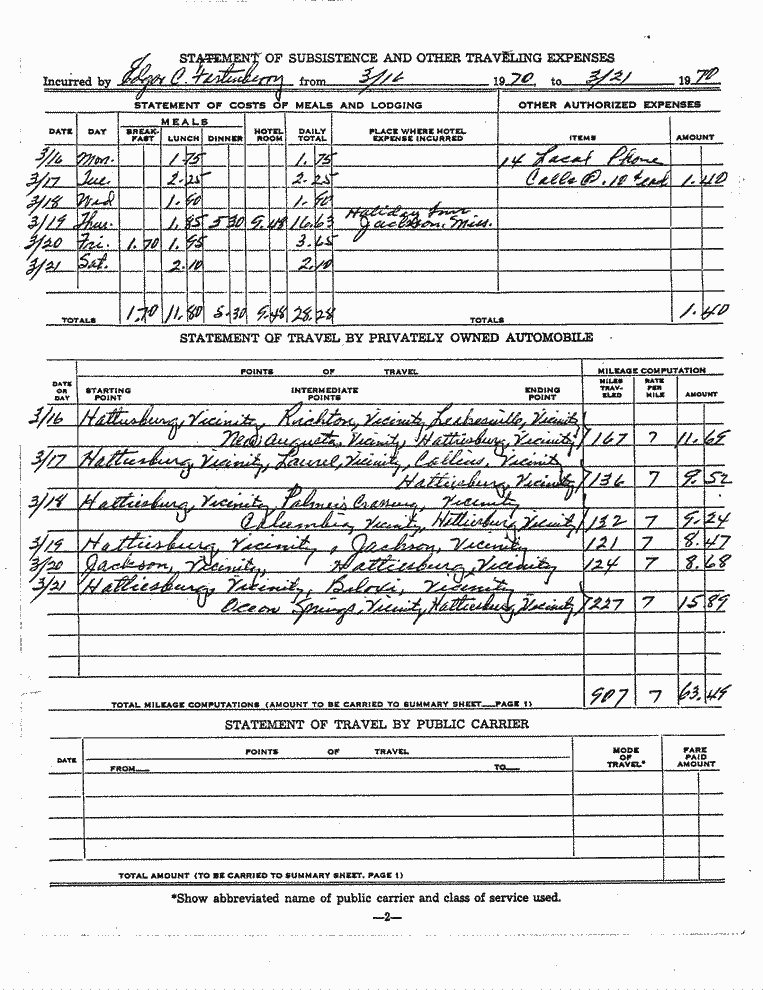 STATEMENT OF SUBSISTENCE AND OTHER TRAVELING EXPENSES
Incurred by Edgar C. Fortenberry from 3/16 1970, to 3/21 1970
STATEMENT OF COSTS OF MEALS AND LODGING OTHER AUTHORIZED EXPENSES
MEALS
DATE DAY BREAK-FAST LUNCH DINNER HOTEL ROOM DAILY TOTAL PLACE WHERE HOTEL EXPENSE INCURRED ITEMS AMOUNT
3/16 Mon. 1.75 1.75 14 Local Phone
3/17 Tue. 2.25 2.25 Calls @ .10 ¢ each 1.40
3/18 Wed 1.90 1.90
3/19 Thur. 1.85 5 30 9.48 16.63 Holiday Inn Jackson, Miss.
3/20 Fri. 1.70 1.95 3.65
3/21 Sat. 2.10 2.10
TOTALS 1.70 11.80 5.30 9.48 28.28 TOTALS 1.40
STATEMENT OF TRAVEL BY PRIVATELY OWNED AUTOMOBILE
POINTS OF TRAVEL MILEAGE COMPUTATION
DATE OR DAY STARTING POINT INTERMEDIATE POINTS ENDING POINT MILES TRAV-ELED RATE PER MILE AMOUNT
3/16 Hattiesburg, Vicinity, Richton, Vicinity, Leakesville, Vicinity
New Augusta, Vicinity, Hattiesburg, Vicinity 167 7 11.69
3/17 Hattiesburg, Vicinity, Laurel, Vicinity, Collins, Vicinity
Hattiesburg, Vicinity 136 7 9.52
3/18 Hattiesburg, Vicinity, Palmers Crossing, Vicinity
Columbia, Vicinity, Hattiesburg, Vicinity 132 7 9.24
3/19 Hattiesburg, Vicinity, Jackson, Vicinity 121 7 8.47
3/20 Jackson, Vicinity, Hattiesburg, Vicinity 124 7 8.68
3/21 Hattiesburg, Vicinity, Biloxi, Vicinity
Ocean Springs, Vicinity, Hattiesburg, Vicinity 227 7 15.89
TOTAL MILEAGE COMPUTATIONS (AMOUNT TO BE CARRIED TO SUMMARY SHEET—PAGE 1) 907 7 63.49
STATEMENT OF TRAVEL BY PUBLIC CARRIER
DATE POINTS OF TRAVEL MODE OF TRAVEL* FARE PAID AMOUNT
FROM— TO—
TOTAL AMOUNT (TO BE CARRIED TO SUMMARY SHEET, PAGE 1)
*Show abbreviated name of public carrier and class of service used.
—2—